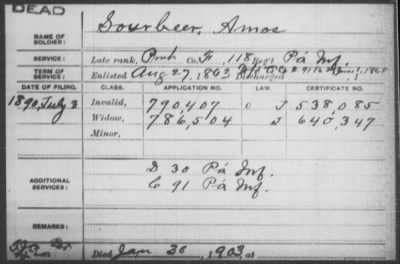 DEAD
NAME OF SOLDIER: Sourbeer, Amos
SERVICE: Late rank, Prvt Co. F, 118 Reg't Pa Inf.
TERM OF SERVICE: Enlisted Aug 27, 1863 Discharged
DATE OF FILING. CLASS. APPLICATION NO. LAW. CERTIFICATE NO.
1890, July 3 Invalid, 790,407 C J 538,085
Widow, 786,504 J 640,347
Minor,
ADDITIONAL SERVICES: D 30 Pa Inf.
C 91 Pa Inf.
REMARKS:
Died Jan 30, 1903, at